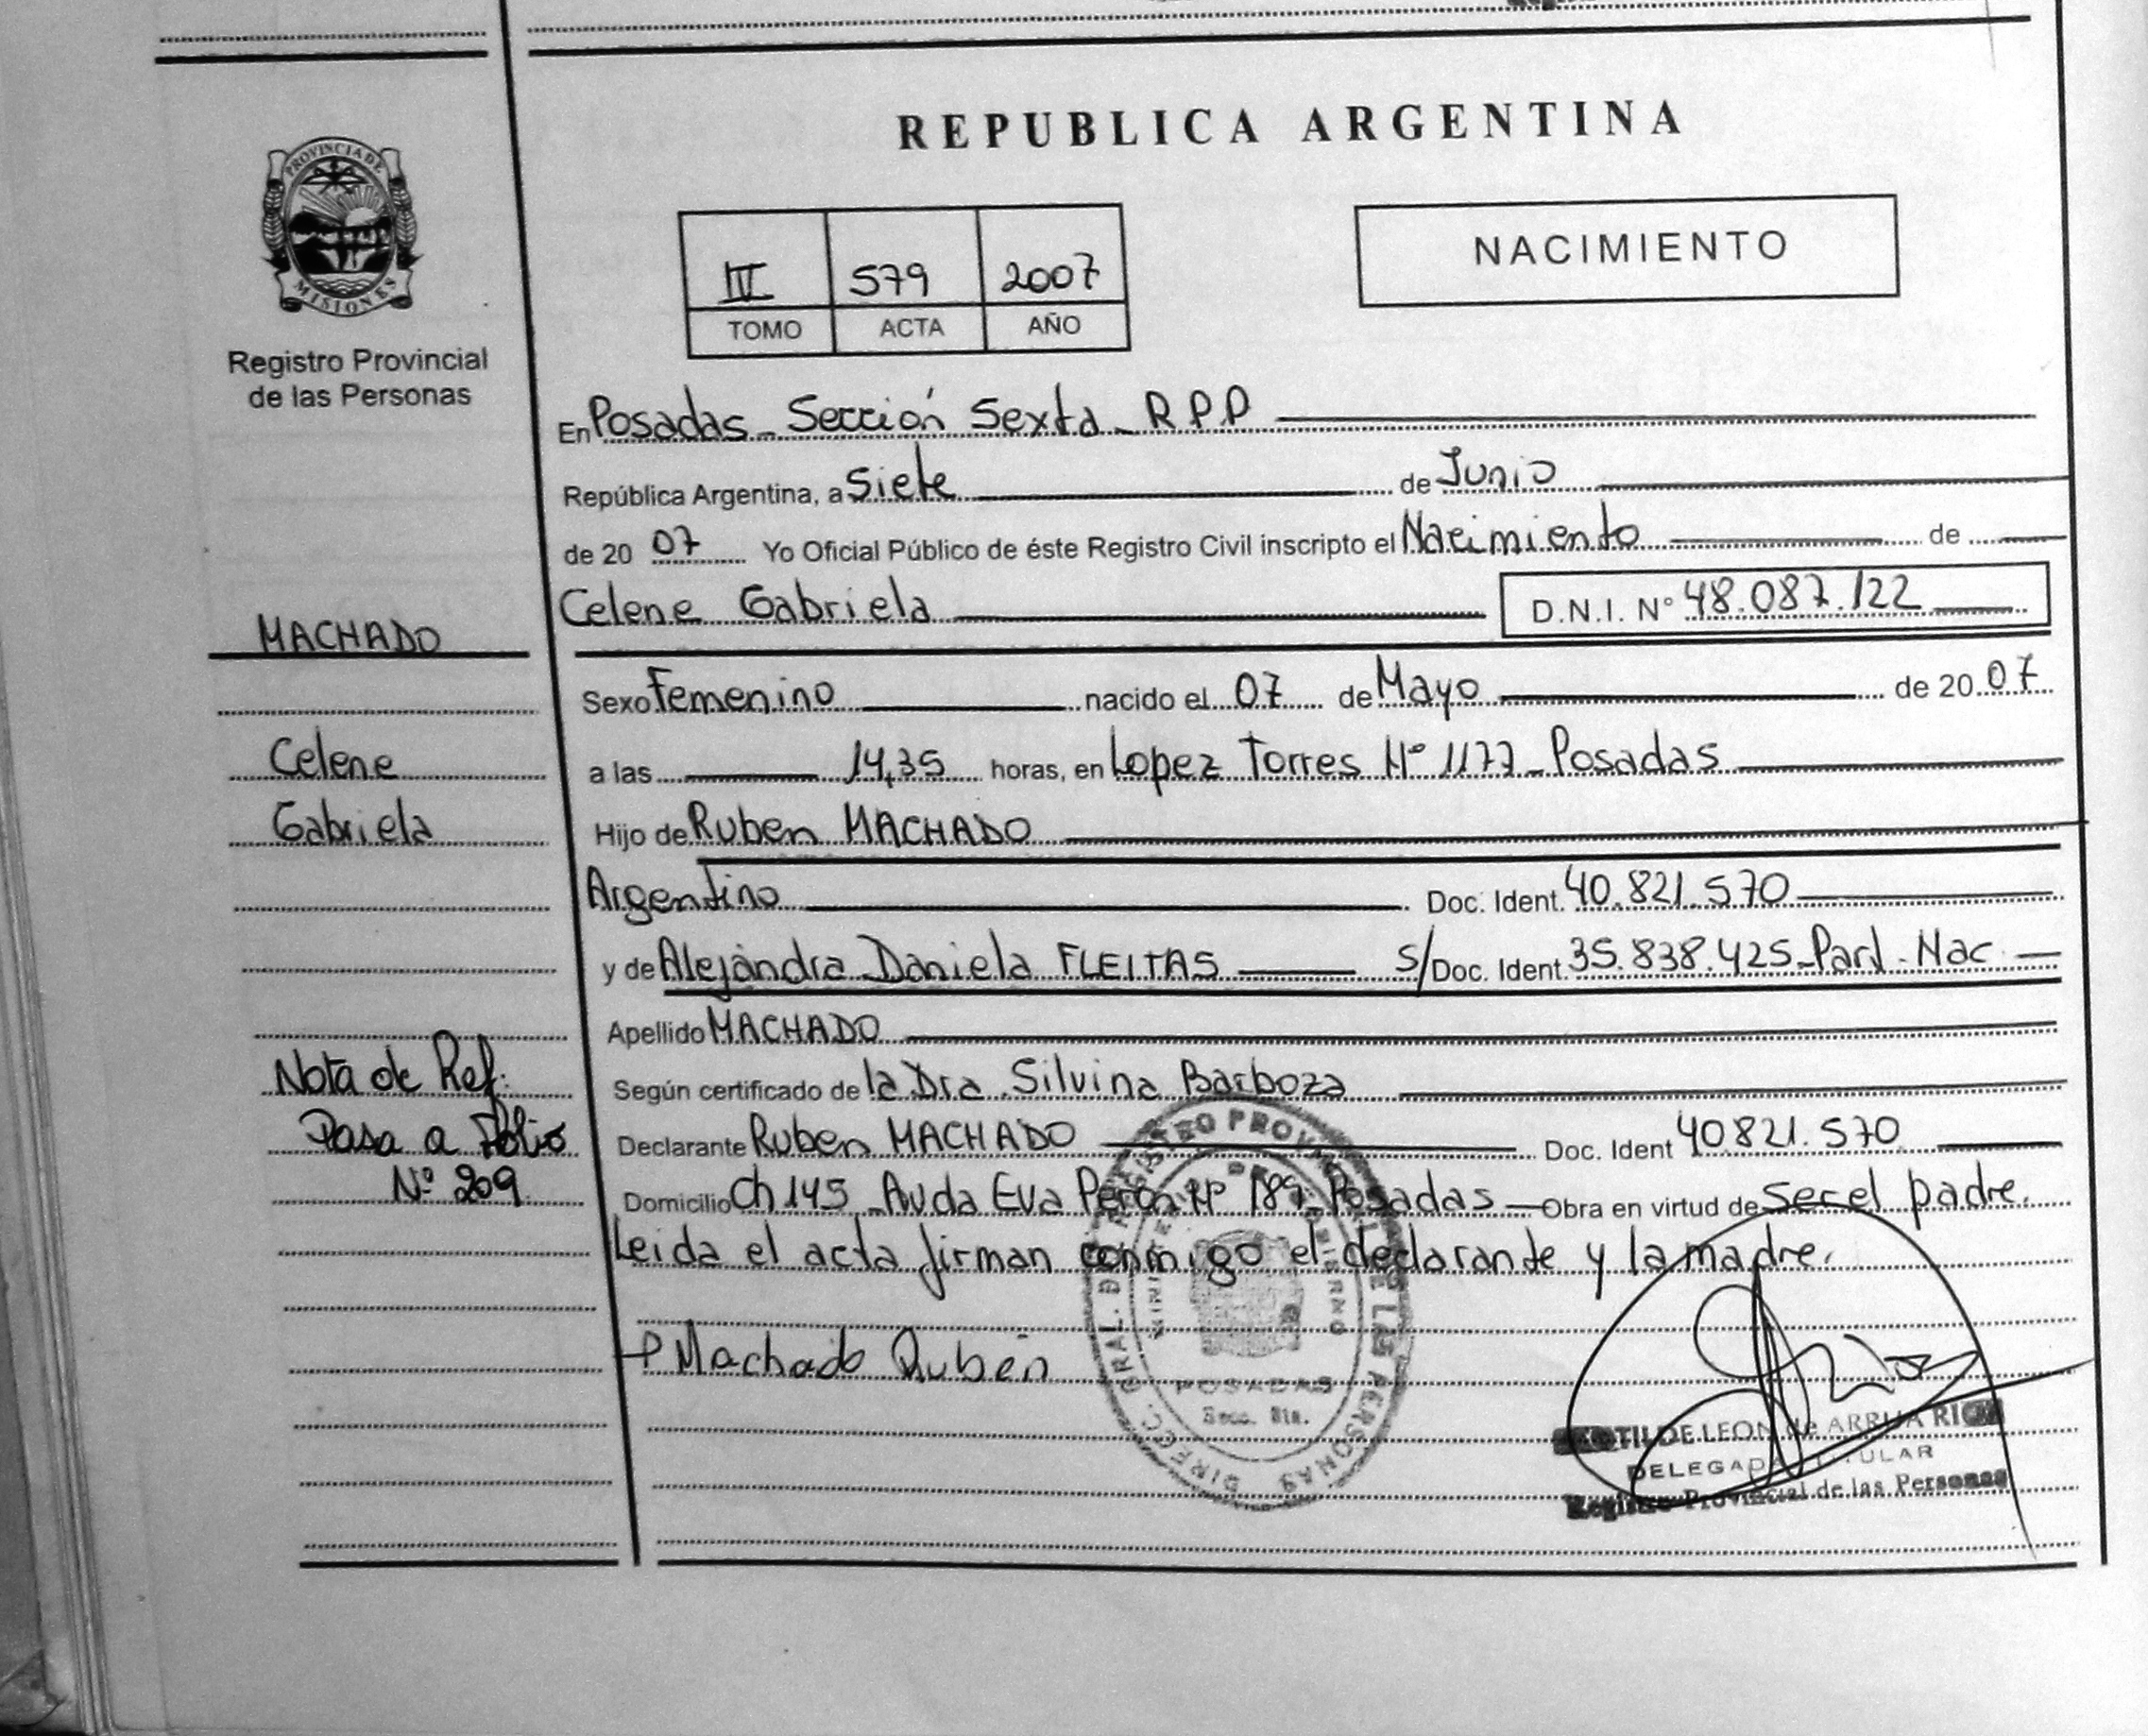 REPUBLICA ARGENTINA
PROVINCIA DE
MISIONES
Registro Provincial
de las Personas
579 2007
TOMO ACTA AÑO
NACIMIENTO
En Posadas - Sección Sexta - R.P.P
República Argentina, a Siete de Junio
de 20 07 Yo Oficial Público de éste Registro Civil inscripto el Nacimiento de
Celene Gabriela D.N.I. N° 48.087.122
MACHADO
Celene
Gabriela
Sexo Femenino nacido el 07 de Mayo de 20 07
a las 14,35 horas, en Lopez Torres N° 1177 - Posadas
Hijo de Ruben MACHADO
Argentino Doc. Ident. 40.821.570
y de Alejandra Daniela FLEITAS S/Doc. Ident. 35.838.425 - Part. Nac.
Apellido MACHADO
Nota de Ref:
Pasa a Folio
N° 209
Según certificado de la Dra. Silvina Barboza
Declarante Ruben MACHADO Doc. Ident 40821.570
Domicilio Ch 145 - Avda Eva Perón N° Posadas - Obra en virtud de ser el padre.
Leida el acta firman conmigo el declarante y la madre.
Machado Rubén
DIRECC. GRAL. DEL REGISTRO PROVINCIAL DE LAS PERSONAS
MINISTERIO DE GOBIERNO
POSADAS
Secc. 6ta.
DE LEON de ARRUA
DELEGADA TITULAR
Registro Provincial de las Personas